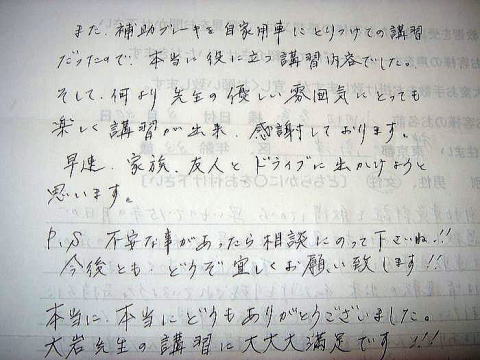 また、補助ブレーキを自家用車にとりつけての講習
だったので、本当に役に立つ講習内容でした。
そして、何より先生の優しい雰囲気にとっても
楽しく講習が出来、感謝しております。
早速、家族、友人とドライブに出かけようと
思います。
P.S 不安な事があったら相談にのって下さいね!!
今後とも、どうぞ宜しくお願い致します!!
本当に、本当にどうもありがとうございました。
大岩先生の講習に大大大満足です!!!